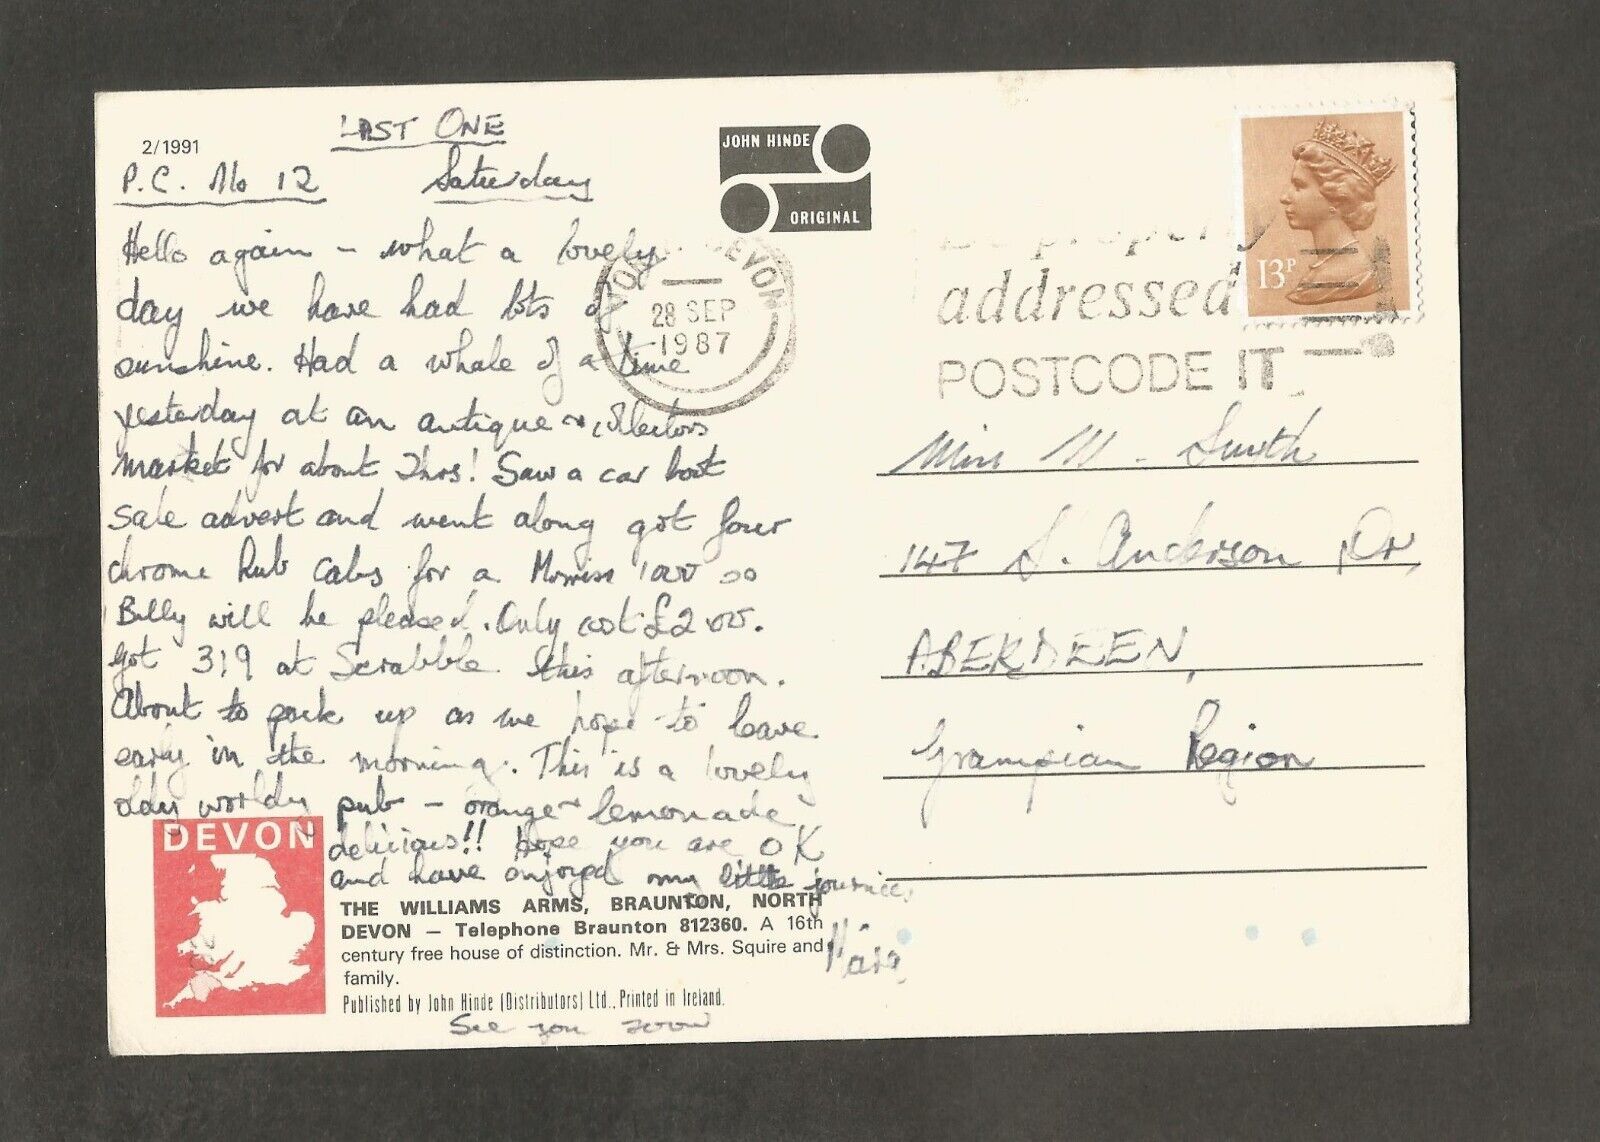 2/1991
LAST ONE
P.C. No 12 Saturday
Hello again – what a lovely
day we have had lots of
sunshine. Had a whale of a time
yesterday at an antique + collectors
market for about 2hrs! Saw a car boot
sale advert and went along got four
chrome hub cabs for a Morris 1000 so
Billy will be pleased. Only cost £2.00.
Got 319 at Scrabble this afternoon.
About to pack up as we hope to leave
early in the morning. This is a lovely
oldy worldy pub – orange + lemonade
delicious!! Hope you are OK
and have enjoyed my little
See you soon
DEVON
THE WILLIAMS ARMS, BRAUNTON, NORTH
DEVON — Telephone Braunton 812360. A 16th
century free house of distinction. Mr. & Mrs. Squire and
family.
Published by John Hinde (Distributors) Ltd., Printed in Ireland.
JOHN HINDE
ORIGINAL
DEVON
28 SEP
1987
properly
addressed
POSTCODE IT
13P
Miss M. Smith
147 S. Anderson Dr,
ABERDEEN,
Grampian Region